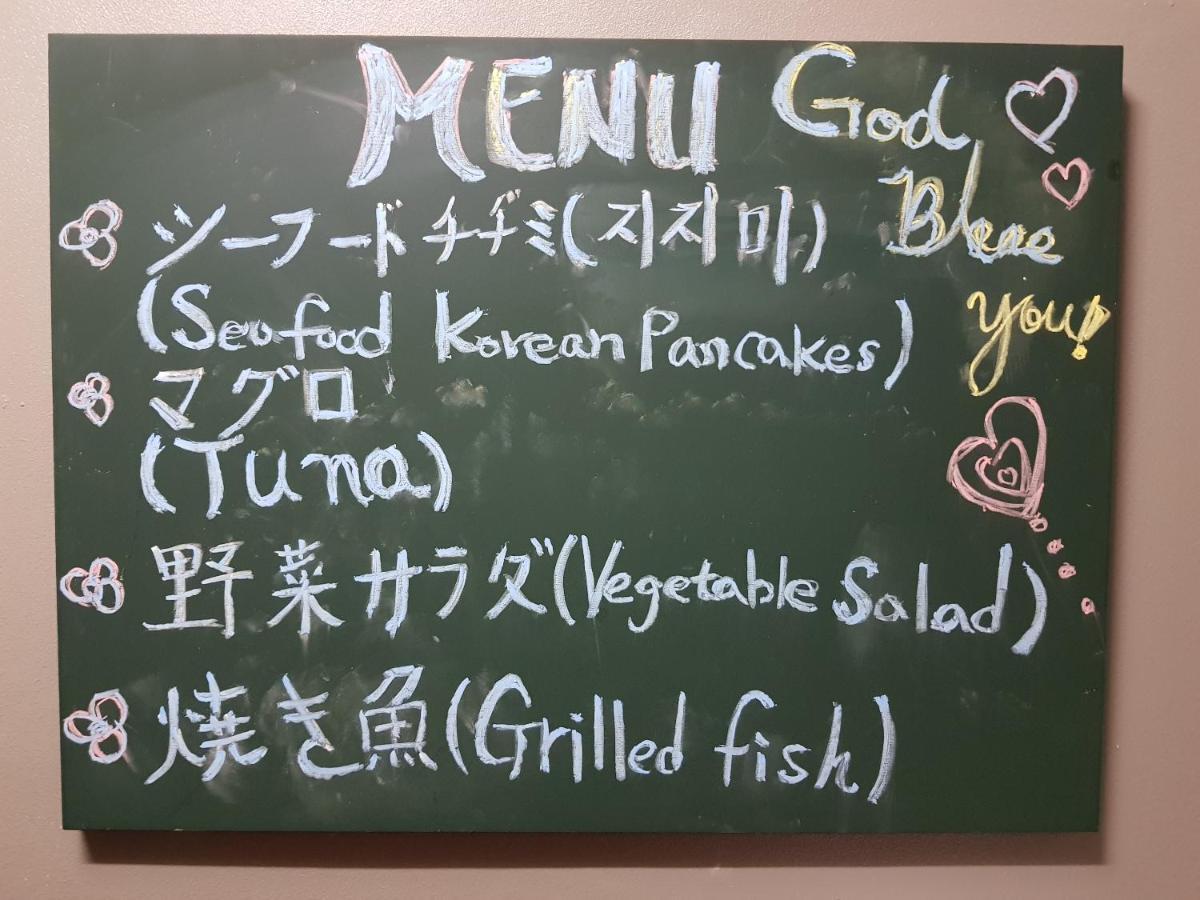 MENU
シーフードチヂミ(지지미)
(Seafood Korean Pancakes)
マグロ
(Tuna)
野菜サラダ(Vegetable Salad)
焼き魚(Grilled fish)
God
Bless
you!